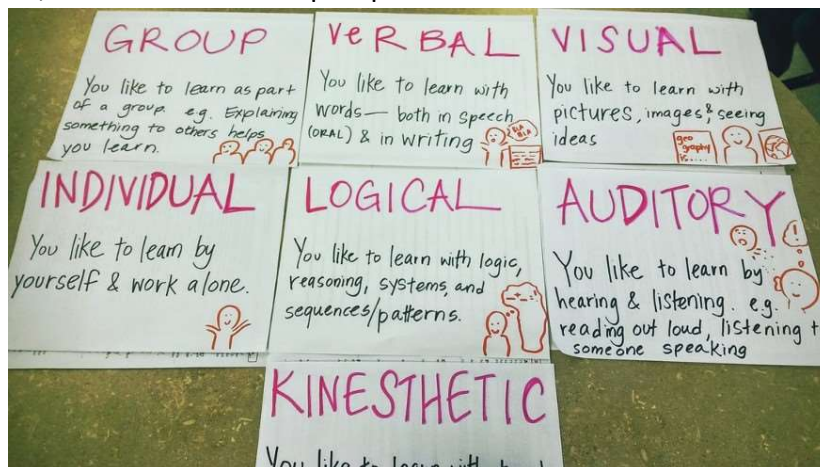 GROUP
You like to learn as part
of a group. e.g. Explaining
something to others helps
you learn.
VERBAL
You like to learn with
words— both in speech
(ORAL) & in writing
BLA
BLA
VISUAL
You like to learn with
pictures, images & seeing
ideas
geo
graphy
INDIVIDUAL
You like to learn by
yourself & work alone.
LOGICAL
You like to learn with logic,
reasoning, systems, and
sequences/patterns.
AUDITORY
You like to learn by
hearing & listening. e.g.
reading out loud, listening t
someone speaking
KINESTHETIC
You like to learn with